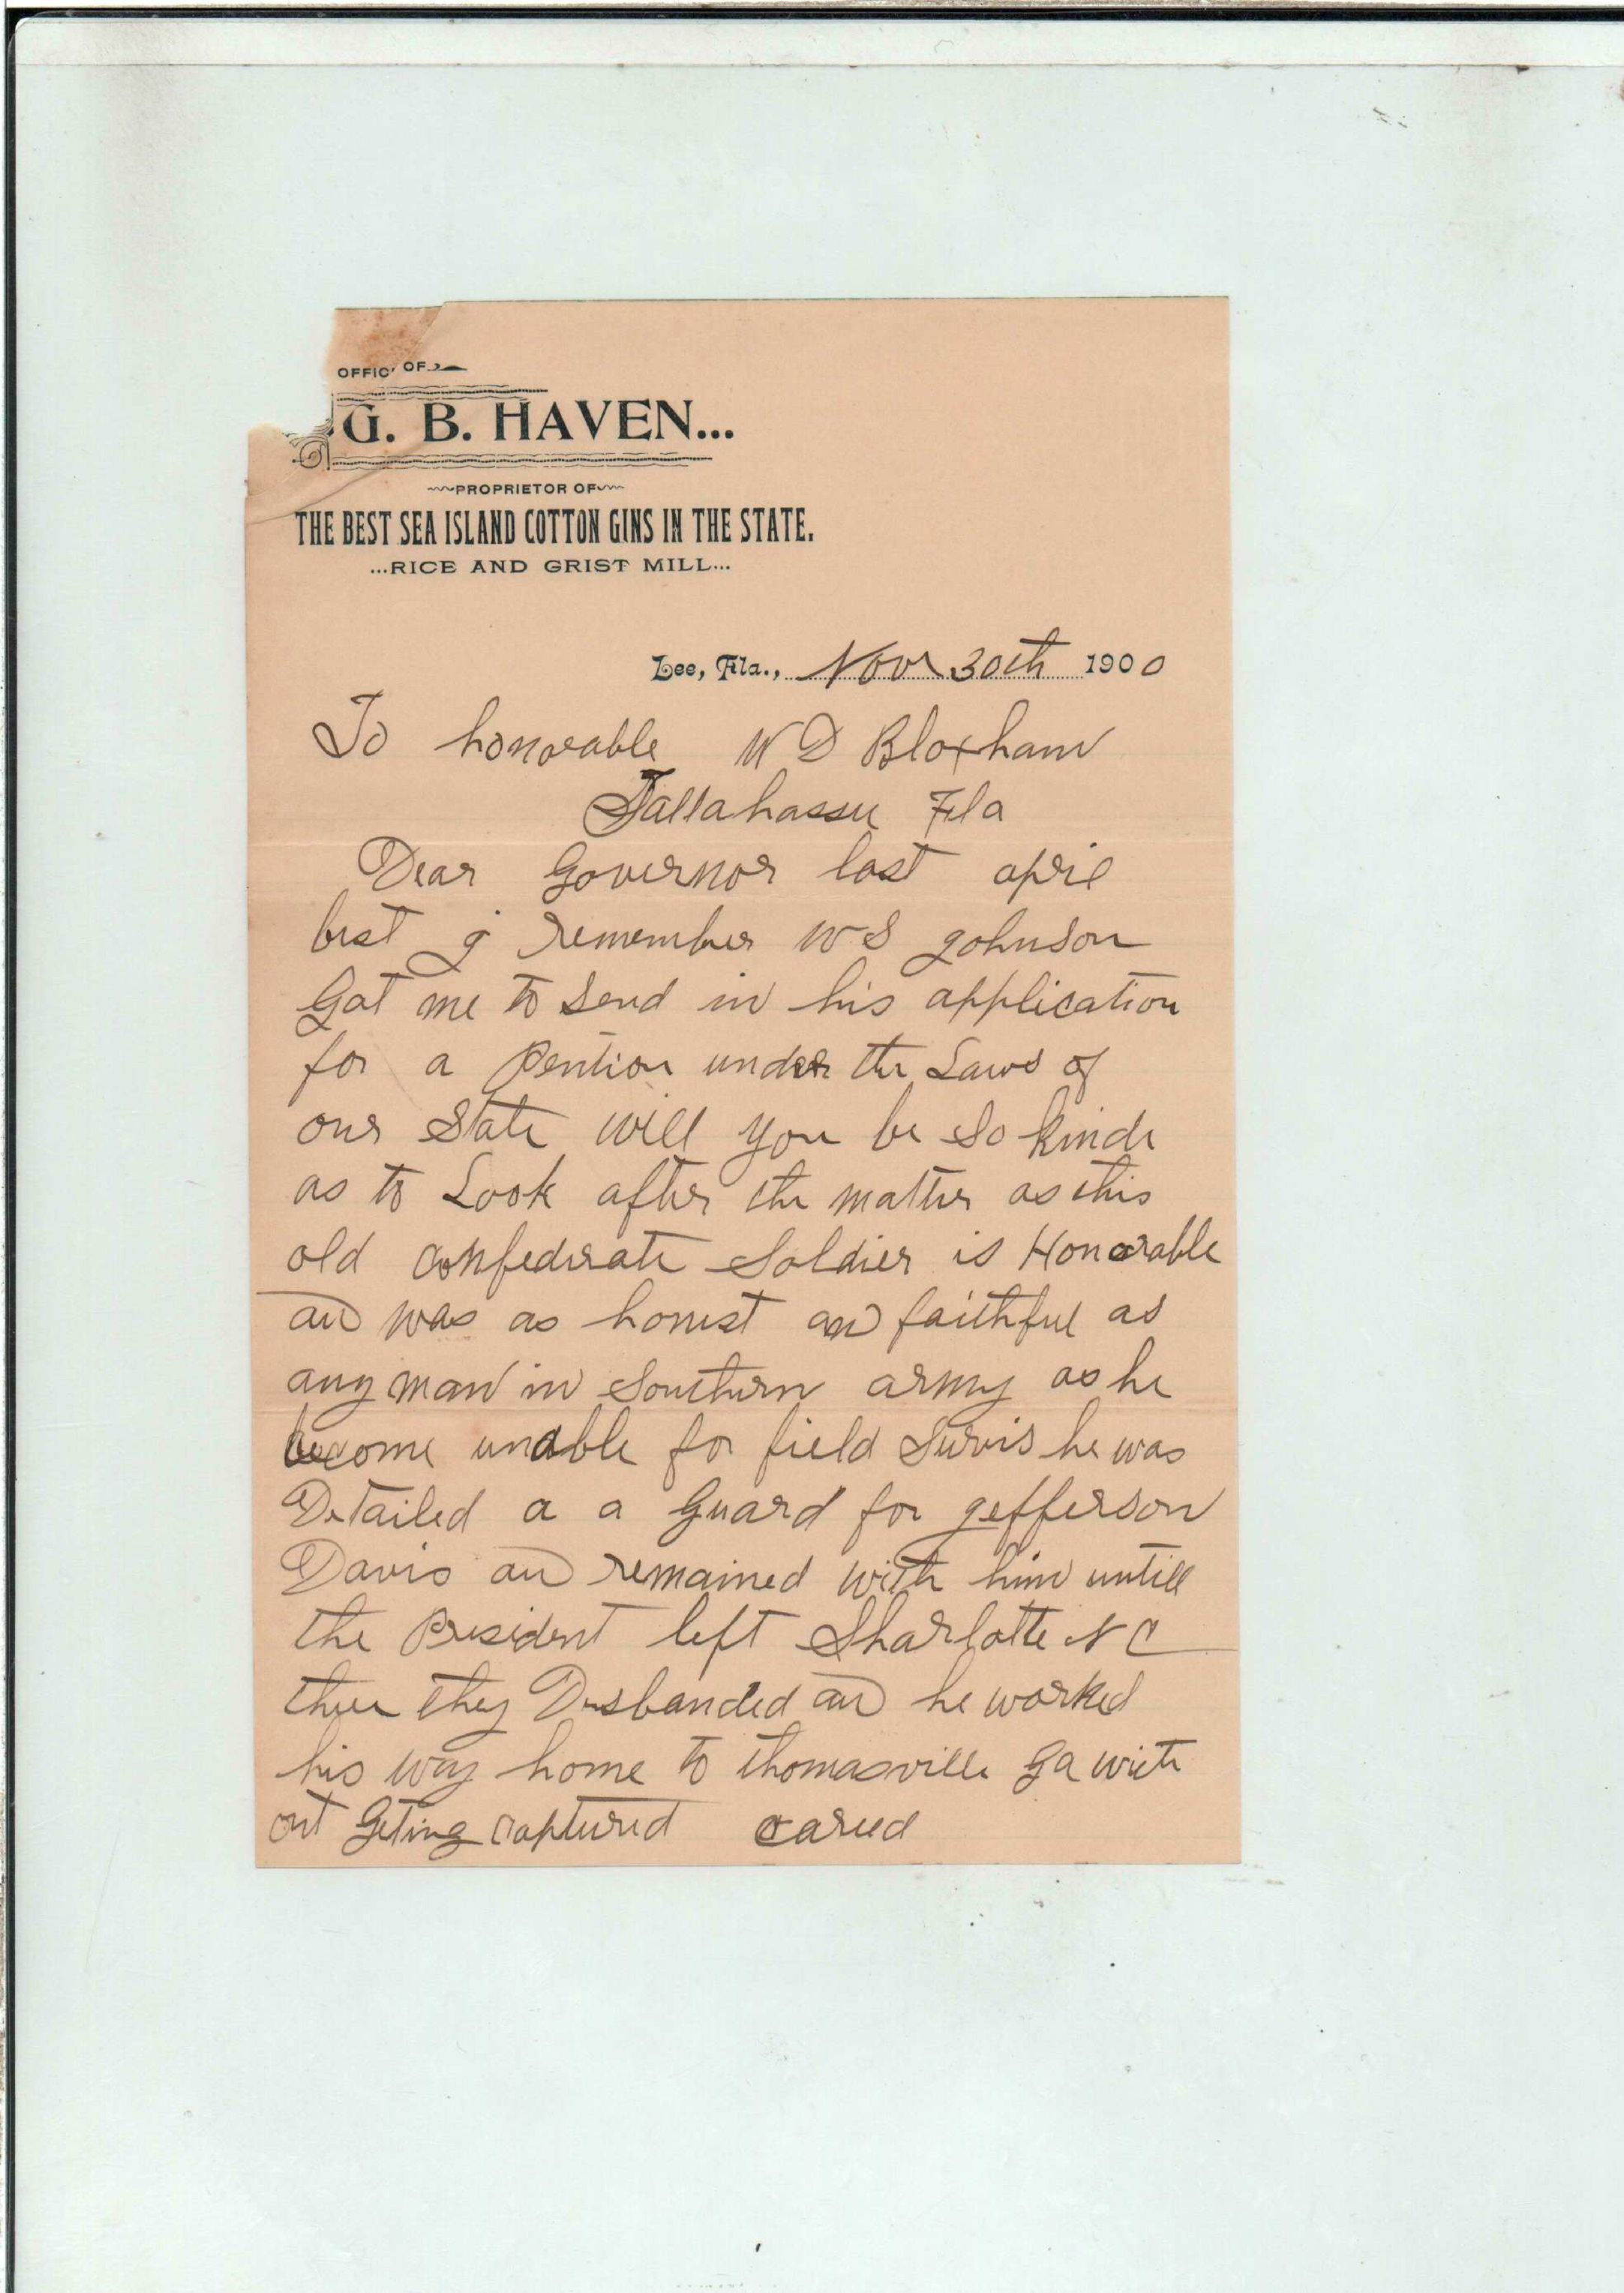 OFFIC OF
G. B. HAVEN...
PROPRIETOR OF
THE BEST SEA ISLAND COTTON GINS IN THE STATE.
...RICE AND GRIST MILL...
Lee, Fla., Nov 30th 1900
To honorable W D Bloxham
Tallahassee Fla
Dear Governor last april
best I remember W S Johnson
Got me to Send in his application
for a Pention under the Laws of
our State will you be So kinde
as to Look after the matter as this
old confederate Soldier is Honorable
an was as honest an faithful as
any man in Southern army as he
become unable for field Survis he was
Detailed a a Guard for Jefferson
Davis an remained with him untill
the President left Sharlotte N C
they Disbanded an he worked
his way home to Thomasville Ga with
out Geting captured caried